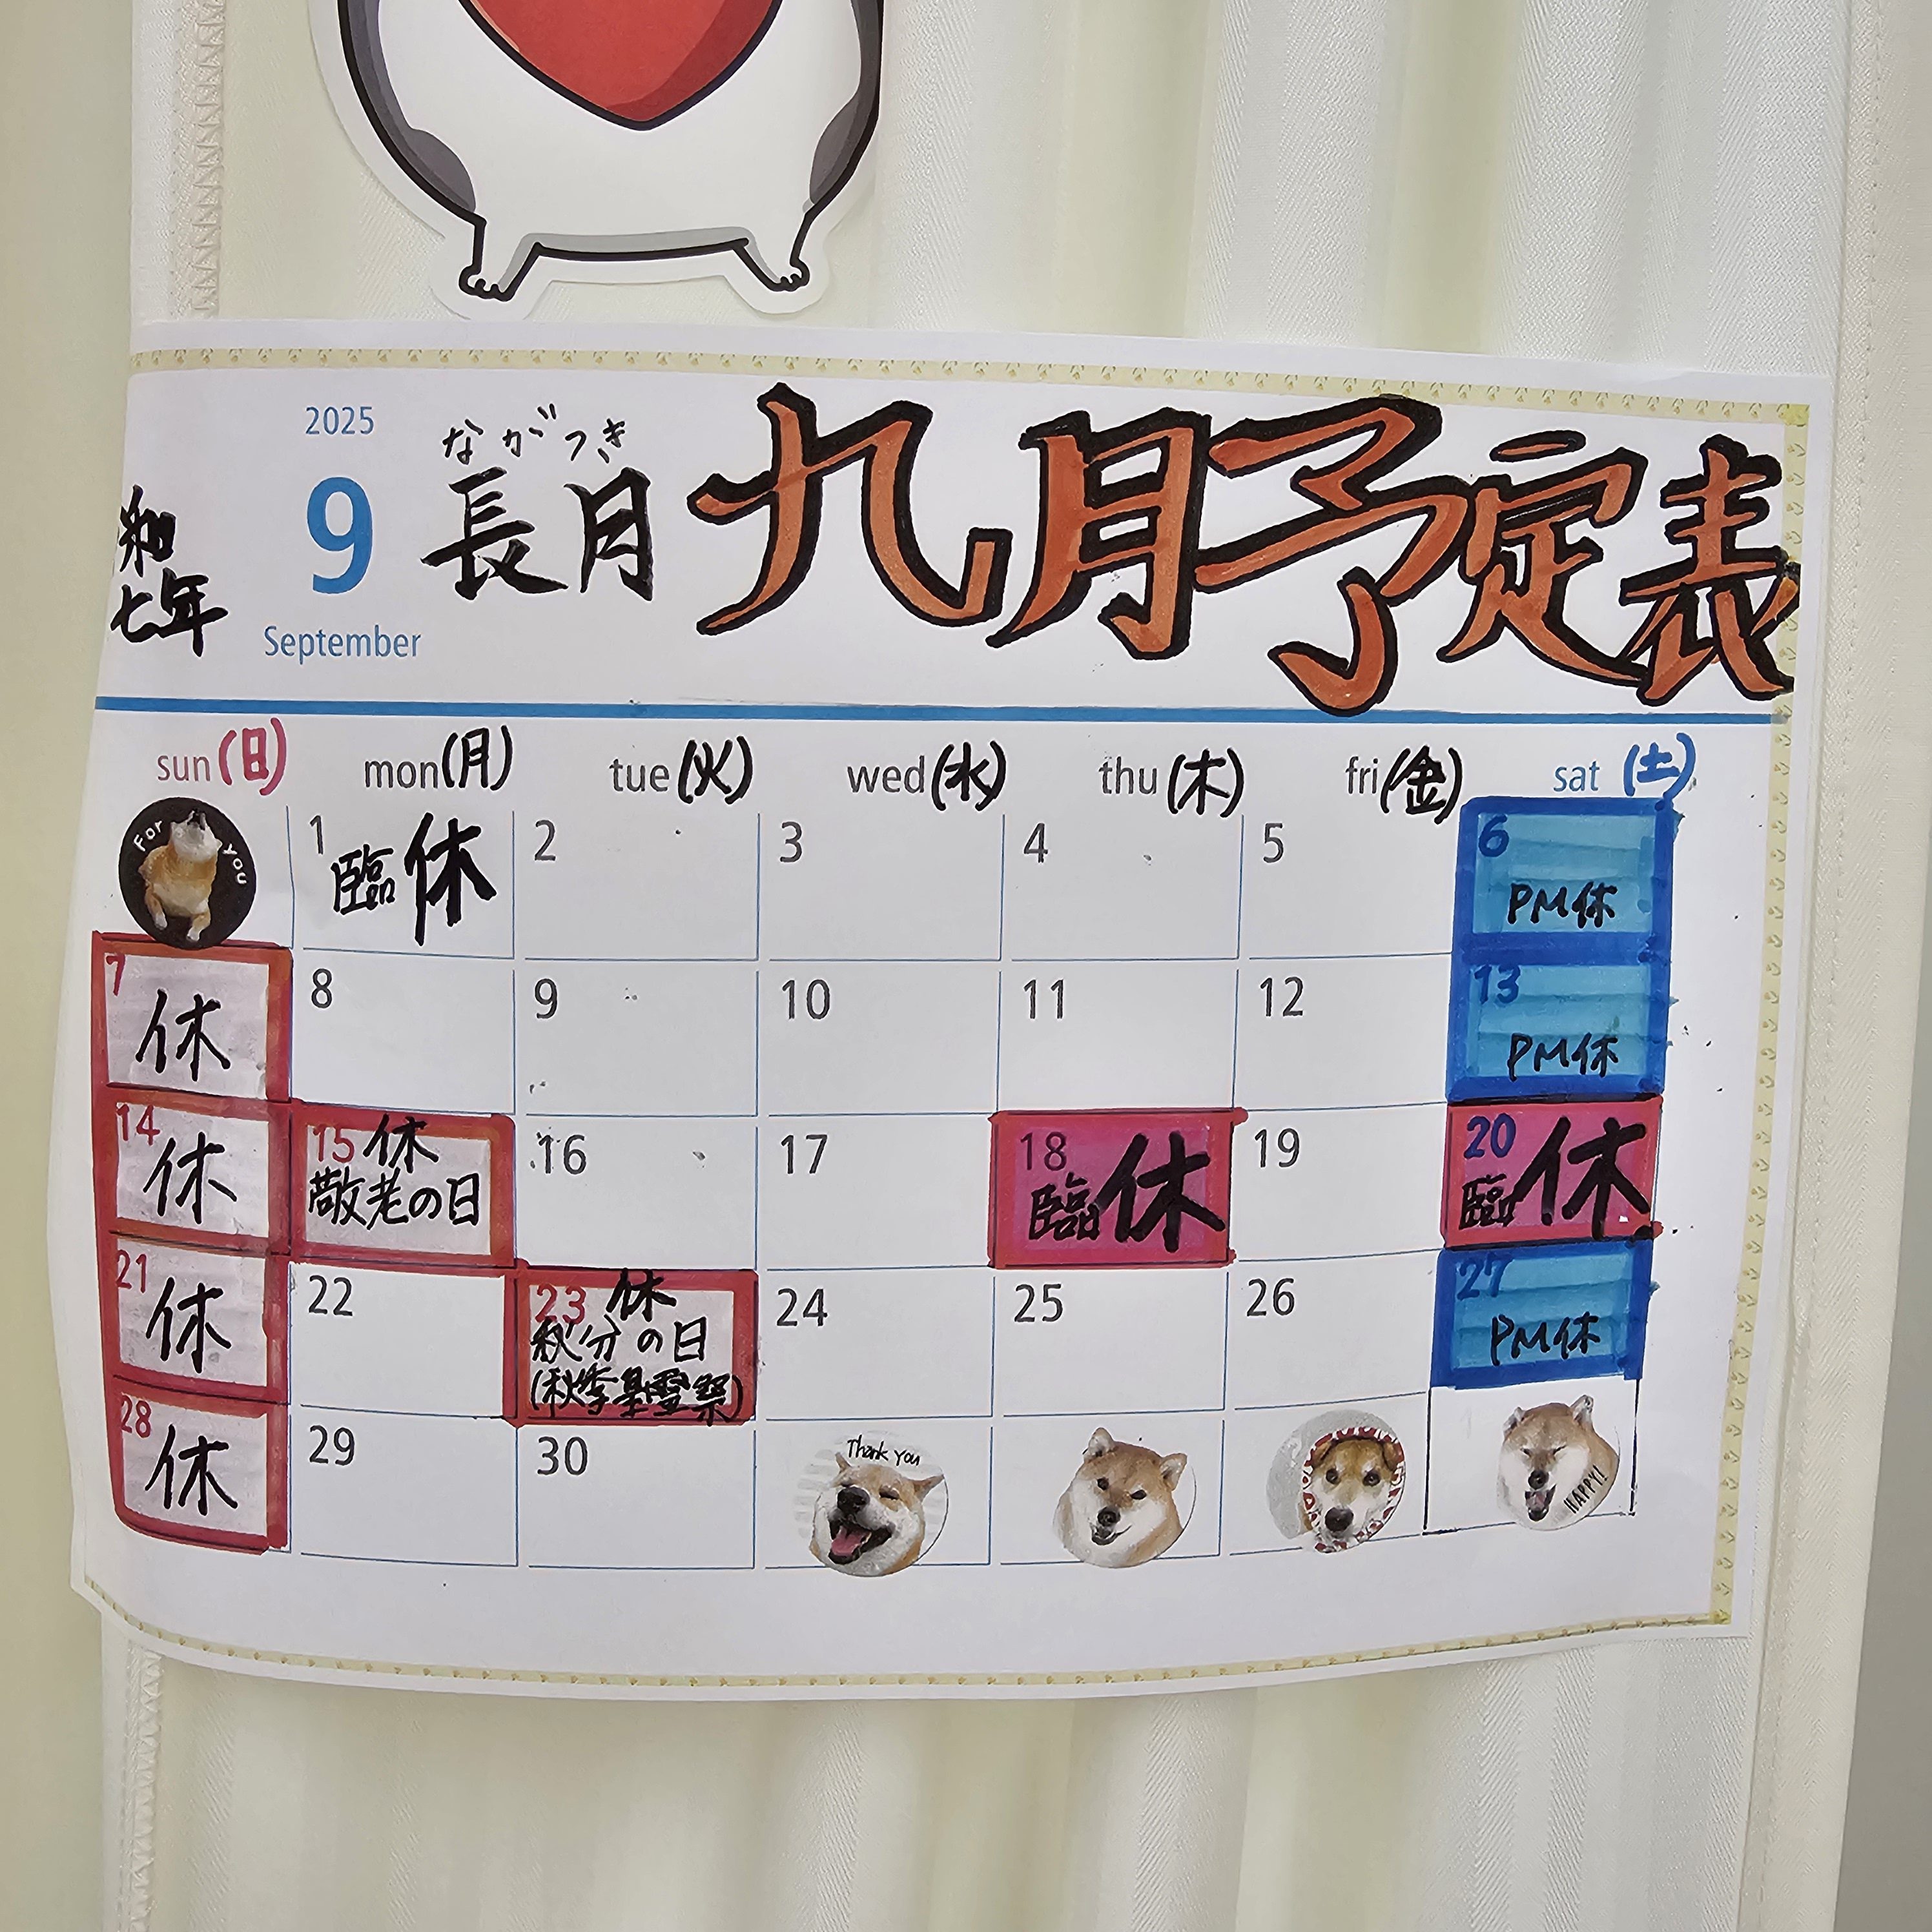 2025
ながつき
9 長月 九月予定表
和
七年
September
sun(日) mon(月) tue(火) wed(水) thu(木) fri(金) sat(土)
For you
1 臨休
2
3
4
5
6
PM休
7
休
8
9
10
11
12
13
PM休
14
休
15 休
敬老の日
16
17
18
臨休
19
20
臨休
21
休
22
23 休
秋分の日
(秋季皇霊祭)
24
25
26
27
PM休
28
休
29
30
Thank you
HAPPY!